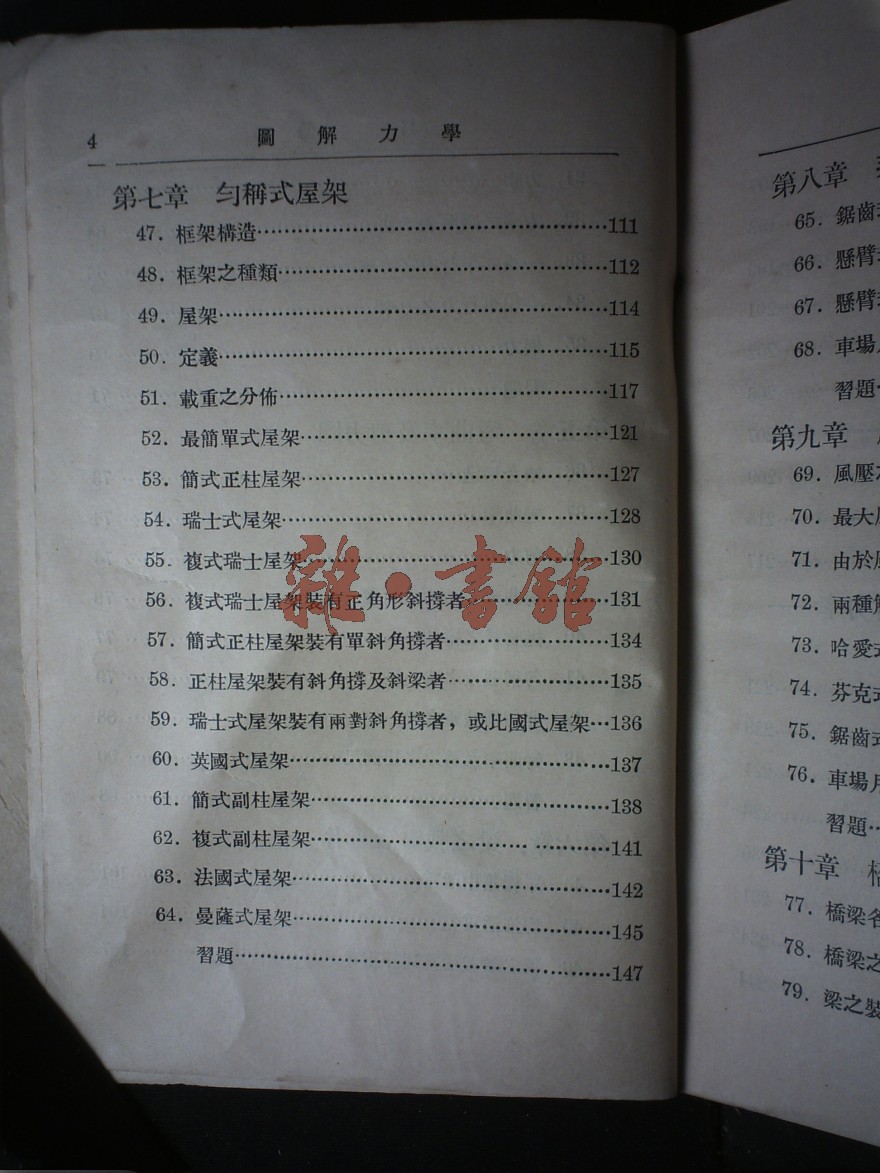 4 圖解力學
第七章 勻稱式屋架
47. 框架構造……111
48. 框架之種類……112
49. 屋架……114
50. 定義……115
51. 載重之分佈……117
52. 最簡單式屋架……121
53. 簡式正柱屋架……127
54. 瑞士式屋架……128
55. 複式瑞士屋架……130
56. 複式瑞士屋架裝有正角形斜撐者……131
57. 簡式正柱屋架裝有單斜角撐者……134
58. 正柱屋架裝有斜角撐及斜梁者……135
59. 瑞士式屋架裝有兩對斜角撐者，或比國式屋架…136
60. 英國式屋架……137
61. 簡式副柱屋架……138
62. 複式副柱屋架……141
63. 法國式屋架……142
64. 曼薩式屋架……145
習題……147
雜·書館
第八章
65. 鋸齒
66. 懸臂
67. 懸臂
68. 車場
習題
第九章
69. 風壓
70. 最大
71. 由於
72. 兩種
73. 哈愛式
74. 芬克式
75. 鋸齒式
76. 車場
習題
第十章
77. 橋梁各
78. 橋梁之
79. 梁之裝